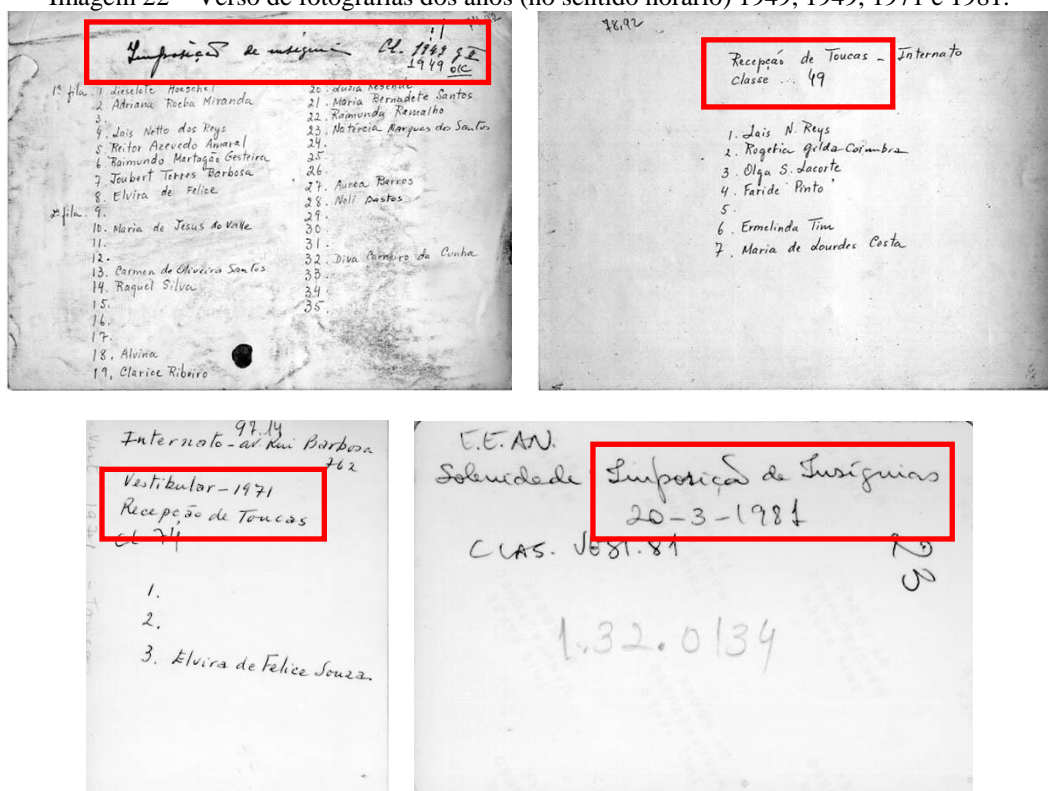 Imagem 22 – Verso de fotografias dos anos (no sentido horário) 1949, 1949, 1971 e 1981.
Imposição de insígnia Cl. 1949
1949 OK
1ª fila. 1 Lieselote Hoeschel
2 Adriana Rocha Miranda
3.
4. Lais Netto dos Reys
5. Heitor Azevedo Amaral
6 Raimundo Martagão Gesteira
7. Joubert Torres Barbosa
8. Elvira de Felice
2ª fila. 9.
10. Maria de Jesus do Valle
11.
12.
13. Carmen de Oliveira Santos
14. Raquel Silva
15.
16.
17.
18. Alvina
19. Clarice Ribeiro
20. Luzia Resende
21. Maria Bernadete Santos
22. Raimunda Ramalho
23. Natércia Marques dos Santos
24.
25.
26.
27. Aurea Barros
28. Neli
29.
30.
31.
32. Diva Carneiro da Cunha
33.
34.
35.
78.92
Recepção de Toucas - Internato
Classe ... 49
1. Lais N. Reys
2. Rogetica Gilda Coimbra
3. Olga S. Lacorte
4. Faride Pinto
5.
6. Ermelinda Tim
7. Maria de Lourdes Costa
97.14
Internato - av. Rui Barbosa
762
Vestibular - 1971
Recepção de Toucas
Cl 74
1.
2.
3. Elvira de Felice Souza
E.E.AN.
Solenidade Imposição de Insígnias
20-3-1981
CLAS. VEST. 81
1.32.0134